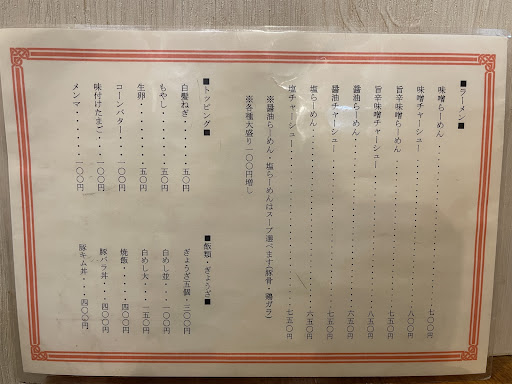 ■ラーメン■
味噌らーめん・・・・・・・・・・・・・・・・七〇〇円
味噌チャーシュー・・・・・・・・・・・・・・八〇〇円
旨辛味噌らーめん・・・・・・・・・・・・・・七五〇円
旨辛味噌チャーシュー・・・・・・・・・・・・八五〇円
醤油らーめん・・・・・・・・・・・・・・・・六五〇円
醤油チャーシュー・・・・・・・・・・・・・・七五〇円
塩らーめん・・・・・・・・・・・・・・・・・六五〇円
塩チャーシュー・・・・・・・・・・・・・・・七五〇円
※醤油らーめん・塩らーめんはスープ選べます(豚骨・鶏ガラ)
※各種大盛り一〇〇円増し
■トッピング■
白髪ねぎ・・・・五〇円
もやし・・・・・五〇円
生卵・・・・・・五〇円
コーンバター・・一〇〇円
味付けたまご・・一〇〇円
メンマ・・・・・一〇〇円
■飯類・ぎょうざ■
ぎょうざ五個・・三〇〇円
白めし並・・・一〇〇円
白めし大・・・一五〇円
焼飯・・・・四〇〇円
豚バラ丼・・四〇〇円
豚キム丼・・・四〇〇円